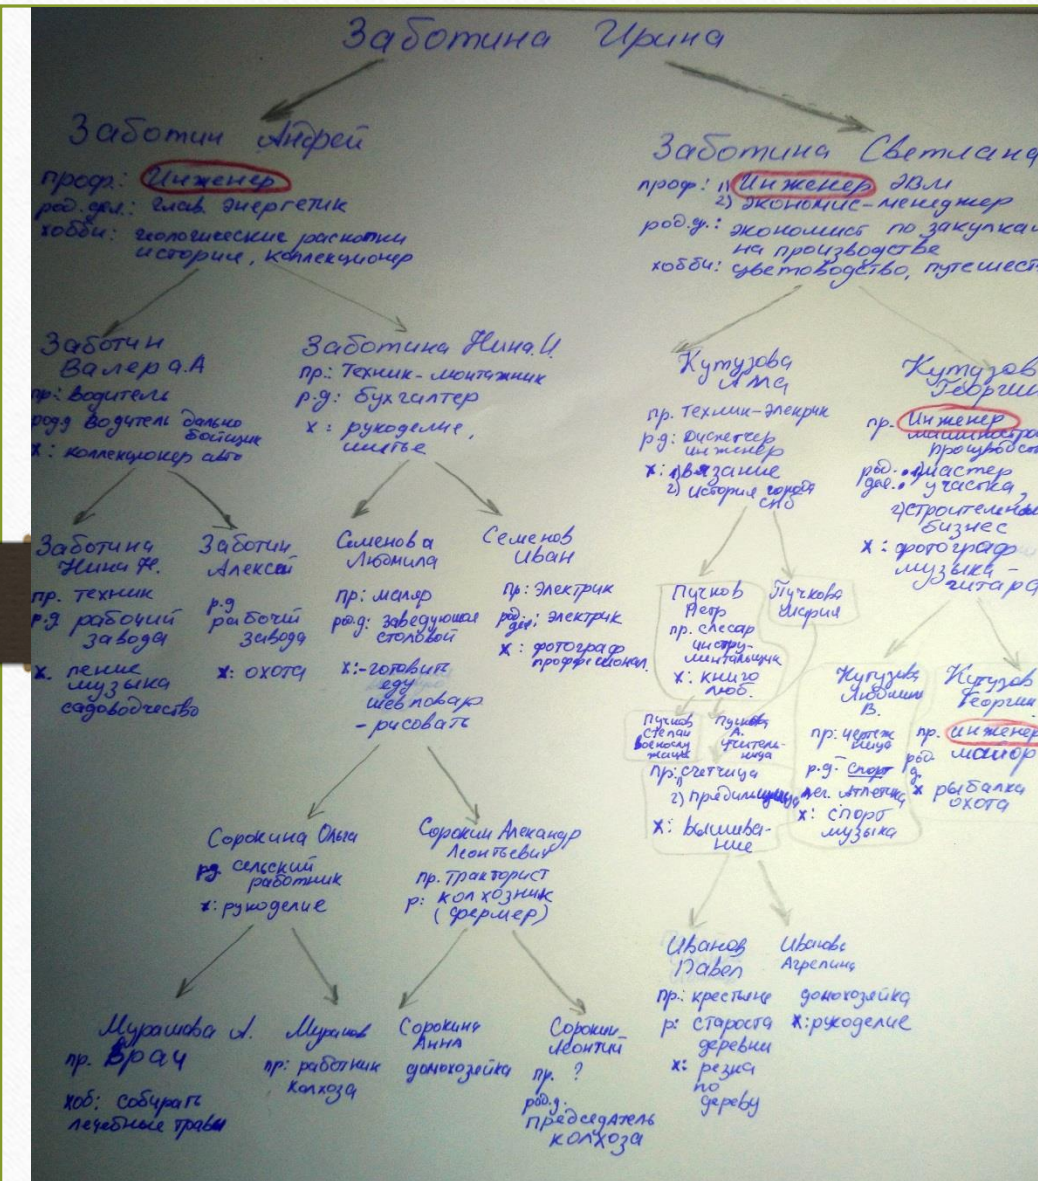 Заботина Ирина
Заботин Андрей
проф.: Инженер
род. дел.: глав. энергетик
хобби: геологические раскопки
истории, коллекционер
Заботина Светлана
проф: 1) Инженер ЭВМ
2) экономис-менеджер
род.д.: экономист по закупкам
на производстве
хобби: цветоводство, путешест
Заботин
Валера.А
пр: водитель
род.д водитель дально
бойщик
х: коллекционер авто
Заботина Нина.И.
пр.: Техник-монтажник
р.д: бухгалтер
х: рукоделие,
шитьё
Кутузова
Алла
пр. техник-элекрик
р.д: диспетчер
инженер
х: 1) вязание
2) история города
СПб
Кутузов
Георгий
пр. Инженер
род. дел.: 1) мастер
участка,
2) строительный
бизнес
х: фотограф
музыка-
гитара
Заботина
Нина Н.
пр. техник
р.д рабочий
завода
х. пение
музыка
садоводчество
Заботин
Алексей
р.д
рабочий
завода
х: охота
Семенова
Людмила
пр: маляр
род.д: заведующая
столовой
х:-готовить
еду
шеф повар
- рисовать
Семенов
Иван
Пр: Электрик
род. дел: электрик
х: фотограф
проффесионал
Пучков
Петр
пр. слесар
инстру-
ментальщик
х: книго
люб.
Пучкова
Мария
Пучков
Степан
военослу
жащий
Пучкова
А.
учитель-
ница
пр: 1) счетчица
2) прядильщица
х: вышива-
ние
Кутузова
Людмила
В.
пр: чертеж
ница
р.д- спорт
лег. атлетика
х: спорт
музыка
Кутузов
Георгий
пр. инженер
род. д. майор
х рыбалка
охота
Сорокина Ольга
рд. сельский
работник
х: рукоделие
Сорокин Александр
Леонтьевич
пр. Тракторист
р: колхозник
(фермер)
Иванов
Павел
пр.: крестьяне
р: староста
деревни
х: резка
по
дереву
Иванова
Агрепина
домохозяйка
х: рукоделие
Мурашова А.
пр. врач
хоб: собирать
лечебные травы
Мурашов
пр: работник
колхоза
Сорокина
Анна
домохозяйка
Сорокин
Леонтий
пр. ?
род.д.
председатель
колхоза